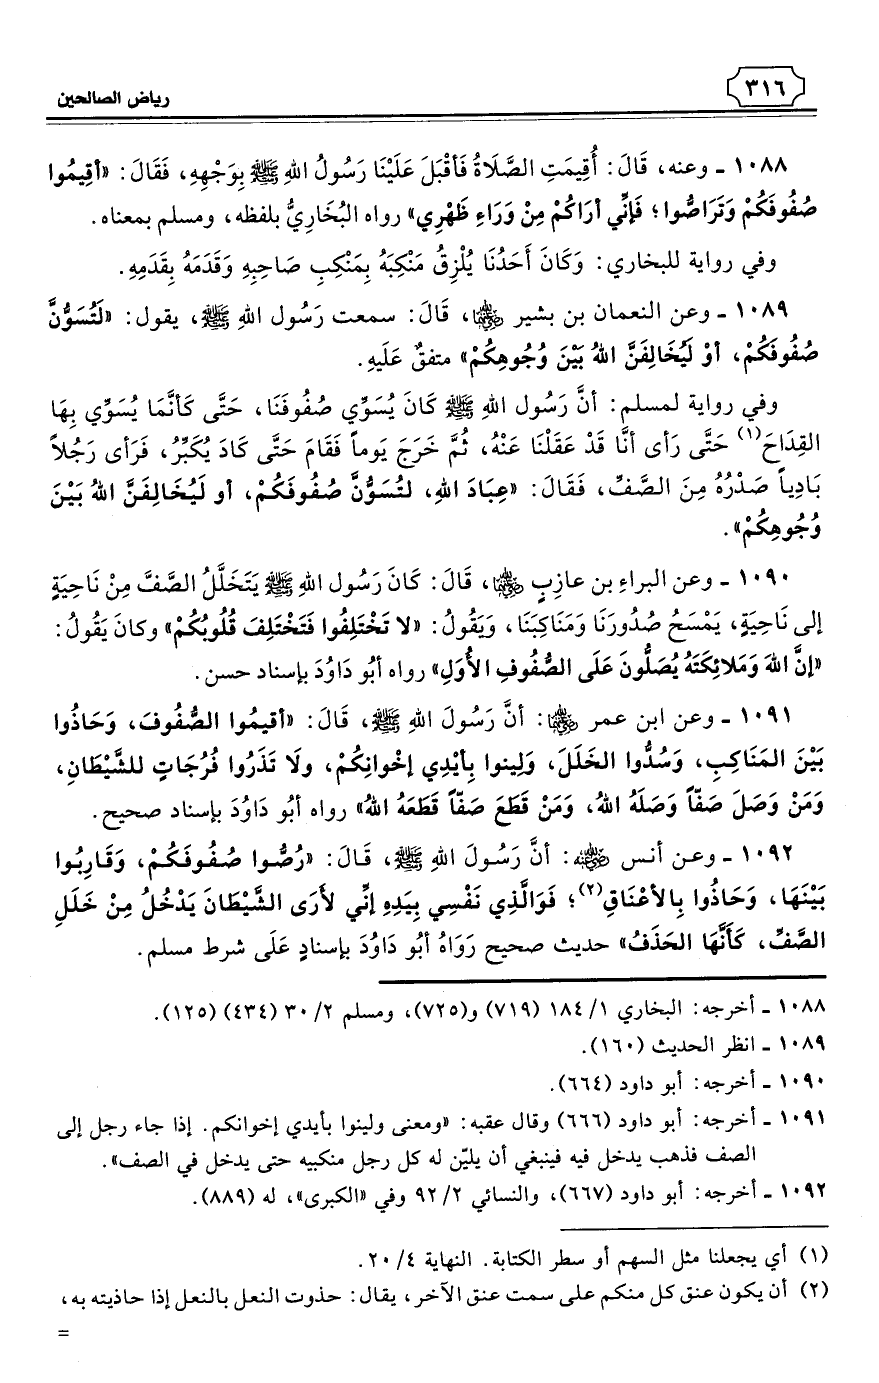 ٣١٦
رياض الصالحين
١٠٨٨ - وعنه، قَالَ: أُقِيمَتِ الصَّلَاةُ فَأقْبَلَ عَلَيْنَا رَسُولُ اللهِ ﷺ بِوَجْهِهِ، فَقَالَ: «أقِيمُوا
صُفُوفَكُمْ وَتَرَاصُّوا؛ فَإنِّي أرَاكُمْ مِنْ وَرَاءِ ظَهْرِي» رواه البُخَارِيُّ بلفظه، ومسلم بمعناه.
وفي رواية للبخاري: وَكَانَ أَحَدُنَا يُلْزِقُ مَنْكِبَهُ بِمَنْكِبِ صَاحِبِهِ وَقَدَمَهُ بِقَدَمِهِ.
١٠٨٩ - وعن النعمان بن بشير ﵄، قَالَ: سمعت رَسُول اللهِ ﷺ، يقول: «لَتُسَوُّنَّ
صُفُوفَكُمْ، أوْ لَيُخَالِفَنَّ اللهُ بَيْنَ وُجُوهِكُمْ» متفقٌ عَلَيهِ.
وفي رواية لمسلم: أنَّ رَسُول اللهِ ﷺ كَانَ يُسَوِّي صُفُوفَنَا، حَتَّى كَأنَّمَا يُسَوِّي بِهَا
القِدَاحَ(١) حَتَّى رَأى أنَّا قَدْ عَقَلْنَا عَنْهُ، ثُمَّ خَرَجَ يَوماً فَقَامَ حَتَّى كَادَ يُكَبِّرُ، فَرَأى رَجُلاً
بَادِياً صَدْرُهُ مِنَ الصَّفِّ، فَقَالَ: «عِبَادَ اللهِ، لتُسَوُّنَّ صُفُوفَكُمْ، أو لَيُخَالِفَنَّ اللهُ بَيْنَ
وُجُوهِكُمْ».
١٠٩٠ - وعن البراءِ بن عازِبٍ ﵄، قَالَ: كَانَ رَسُول اللهِ ﷺ يَتَخَلَّلُ الصَّفَّ مِنْ نَاحِيَةٍ
إلى نَاحِيَةٍ، يَمْسَحُ صُدُورَنَا وَمَنَاكِبَنَا، وَيَقُولُ: «لا تَخْتَلِفُوا فَتَخْتَلِفَ قُلُوبُكُمْ» وكانَ يَقُولُ:
«إنَّ اللهَ وَمَلائِكَتَهُ يُصَلُّونَ عَلَى الصُّفُوفِ الأُوَلِ» رواه أبُو دَاوُدَ بإسناد حسن.
١٠٩١ - وعن ابن عمر ﵄: أنَّ رَسُولَ اللهِ ﷺ، قَالَ: «أقيمُوا الصُّفُوفَ، وَحَاذُوا
بَيْنَ المَنَاكِبِ، وَسُدُّوا الخَلَلَ، وَلِينوا بِأيْدِي إخْوانِكُمْ، ولَا تَذَرُوا فُرُجَاتٍ للشَّيْطَانِ،
وَمَنْ وَصَلَ صَفّاً وَصَلَهُ اللهُ، وَمَنْ قَطَعَ صَفّاً قَطَعَهُ اللهُ» رواه أبُو دَاوُدَ بإسناد صحيح.
١٠٩٢ - وعن أنس ﵁: أنَّ رَسُولَ اللهِ ﷺ، قَالَ: «رُصُّوا صُفُوفَكُمْ، وَقَارِبُوا
بَيْنَهَا، وَحَاذُوا بِالأعْنَاقِ(٢)؛ فَوَالَّذِي نَفْسِي بِيَدِهِ إنِّي لأَرَى الشَّيْطَانَ يَدْخُلُ مِنْ خَلَلِ
الصَّفِّ، كَأَنَّهَا الحَذَفُ» حديث صحيح رَوَاهُ أبُو دَاوُدَ بإسنادٍ عَلَى شرط مسلم.
١٠٨٨ - أخرجه: البخاري ١/ ١٨٤ (٧١٩) و(٧٢٥)، ومسلم ٢/ ٣٠ (٤٣٤) (١٢٥).
١٠٨٩ - انظر الحديث (١٦٠).
١٠٩٠ - أخرجه: أبو داود (٦٦٤).
١٠٩١ - أخرجه: أبو داود (٦٦٦) وقال عقبه: «ومعنى ولينوا بأيدي إخوانكم. إذا جاء رجل إلى
الصف فذهب يدخل فيه فينبغي أن يليّن له كل رجل منكبيه حتى يدخل في الصف».
١٠٩٢ - أخرجه: أبو داود (٦٦٧)، والنسائي ٢/ ٩٢ وفي «الكبرى»، له (٨٨٩).
(١) أي يجعلنا مثل السهم أو سطر الكتابة. النهاية ٤/ ٢٠.
(٢) أن يكون عنق كل منكم على سمت عنق الآخر، يقال: حذوت النعل بالنعل إذا حاذيته به،
=